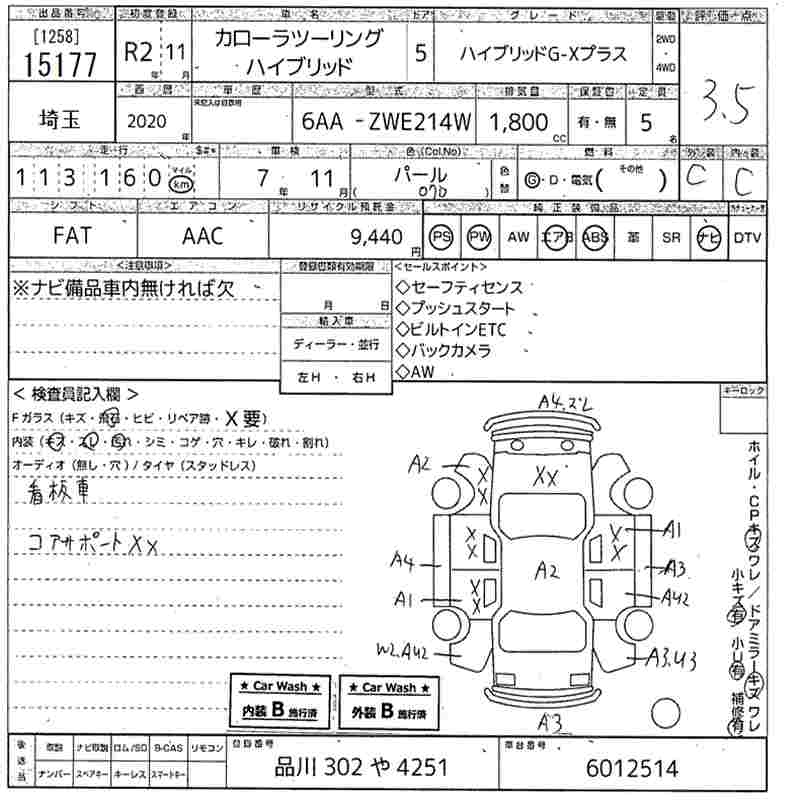 出品番号 初度登録 車名 ドア グレード 駆動 評価点
[1258]
15177
R2年 11月
カローラツーリング
ハイブリッド
5
ハイブリッドG-Xプラス
2WD
・
4WD
3.5
西暦 車歴 型式 排気量 保証書 定員
埼玉
2020年
未記入は自家用
6AA -ZWE214W
1,800cc
有・無
5名
走行 車検 色(Col.No) 燃料 外装 内装
113160 マイル km
7年 11月
パール
( 070 )
色替
Ⓖ・D・電気( その他 )
C C
シフト エアコン リサイクル預託金 純正装備品
FAT AAC 9,440円
PS PW AW エアB ABS 革 SR ナビ DTV
<注意事項> 登録書類有効期限 <セールスポイント>
※ナビ備品車内無ければ欠
月 日
輸入車
ディーラー・並行
左H ・ 右H
◇セーフティセンス
◇プッシュスタート
◇ビルトインETC
◇バックカメラ
◇AW
キーロック
< 検査員記入欄 >
Fガラス (キズ・飛石・ヒビ・リペア跡・X要)
内装 (キズ・スレ・汚れ・シミ・コゲ・穴・キレ・破れ・割れ)
オーディオ (無し・穴) / タイヤ (スタッドレス)
看板車
コアサポートXX
A4.ズレ
A2 X X XX
X X X X A1
A4 A2 A3
A1 X X A42
W2.A42 A3.U3
A3
ホイル・CPキズワレ/ドアミラーキズワレ
小キズ有 小U有 補修有
★ Car Wash ★
内装 B 施行済
★ Car Wash ★
外装 B 施行済
後送品
取説 ナビ取説 ロム/SD B-CAS リモコン
ナンバー スペアキー キーレス スマートキー
登録番号
品川 302 や 4251
車台番号
6012514